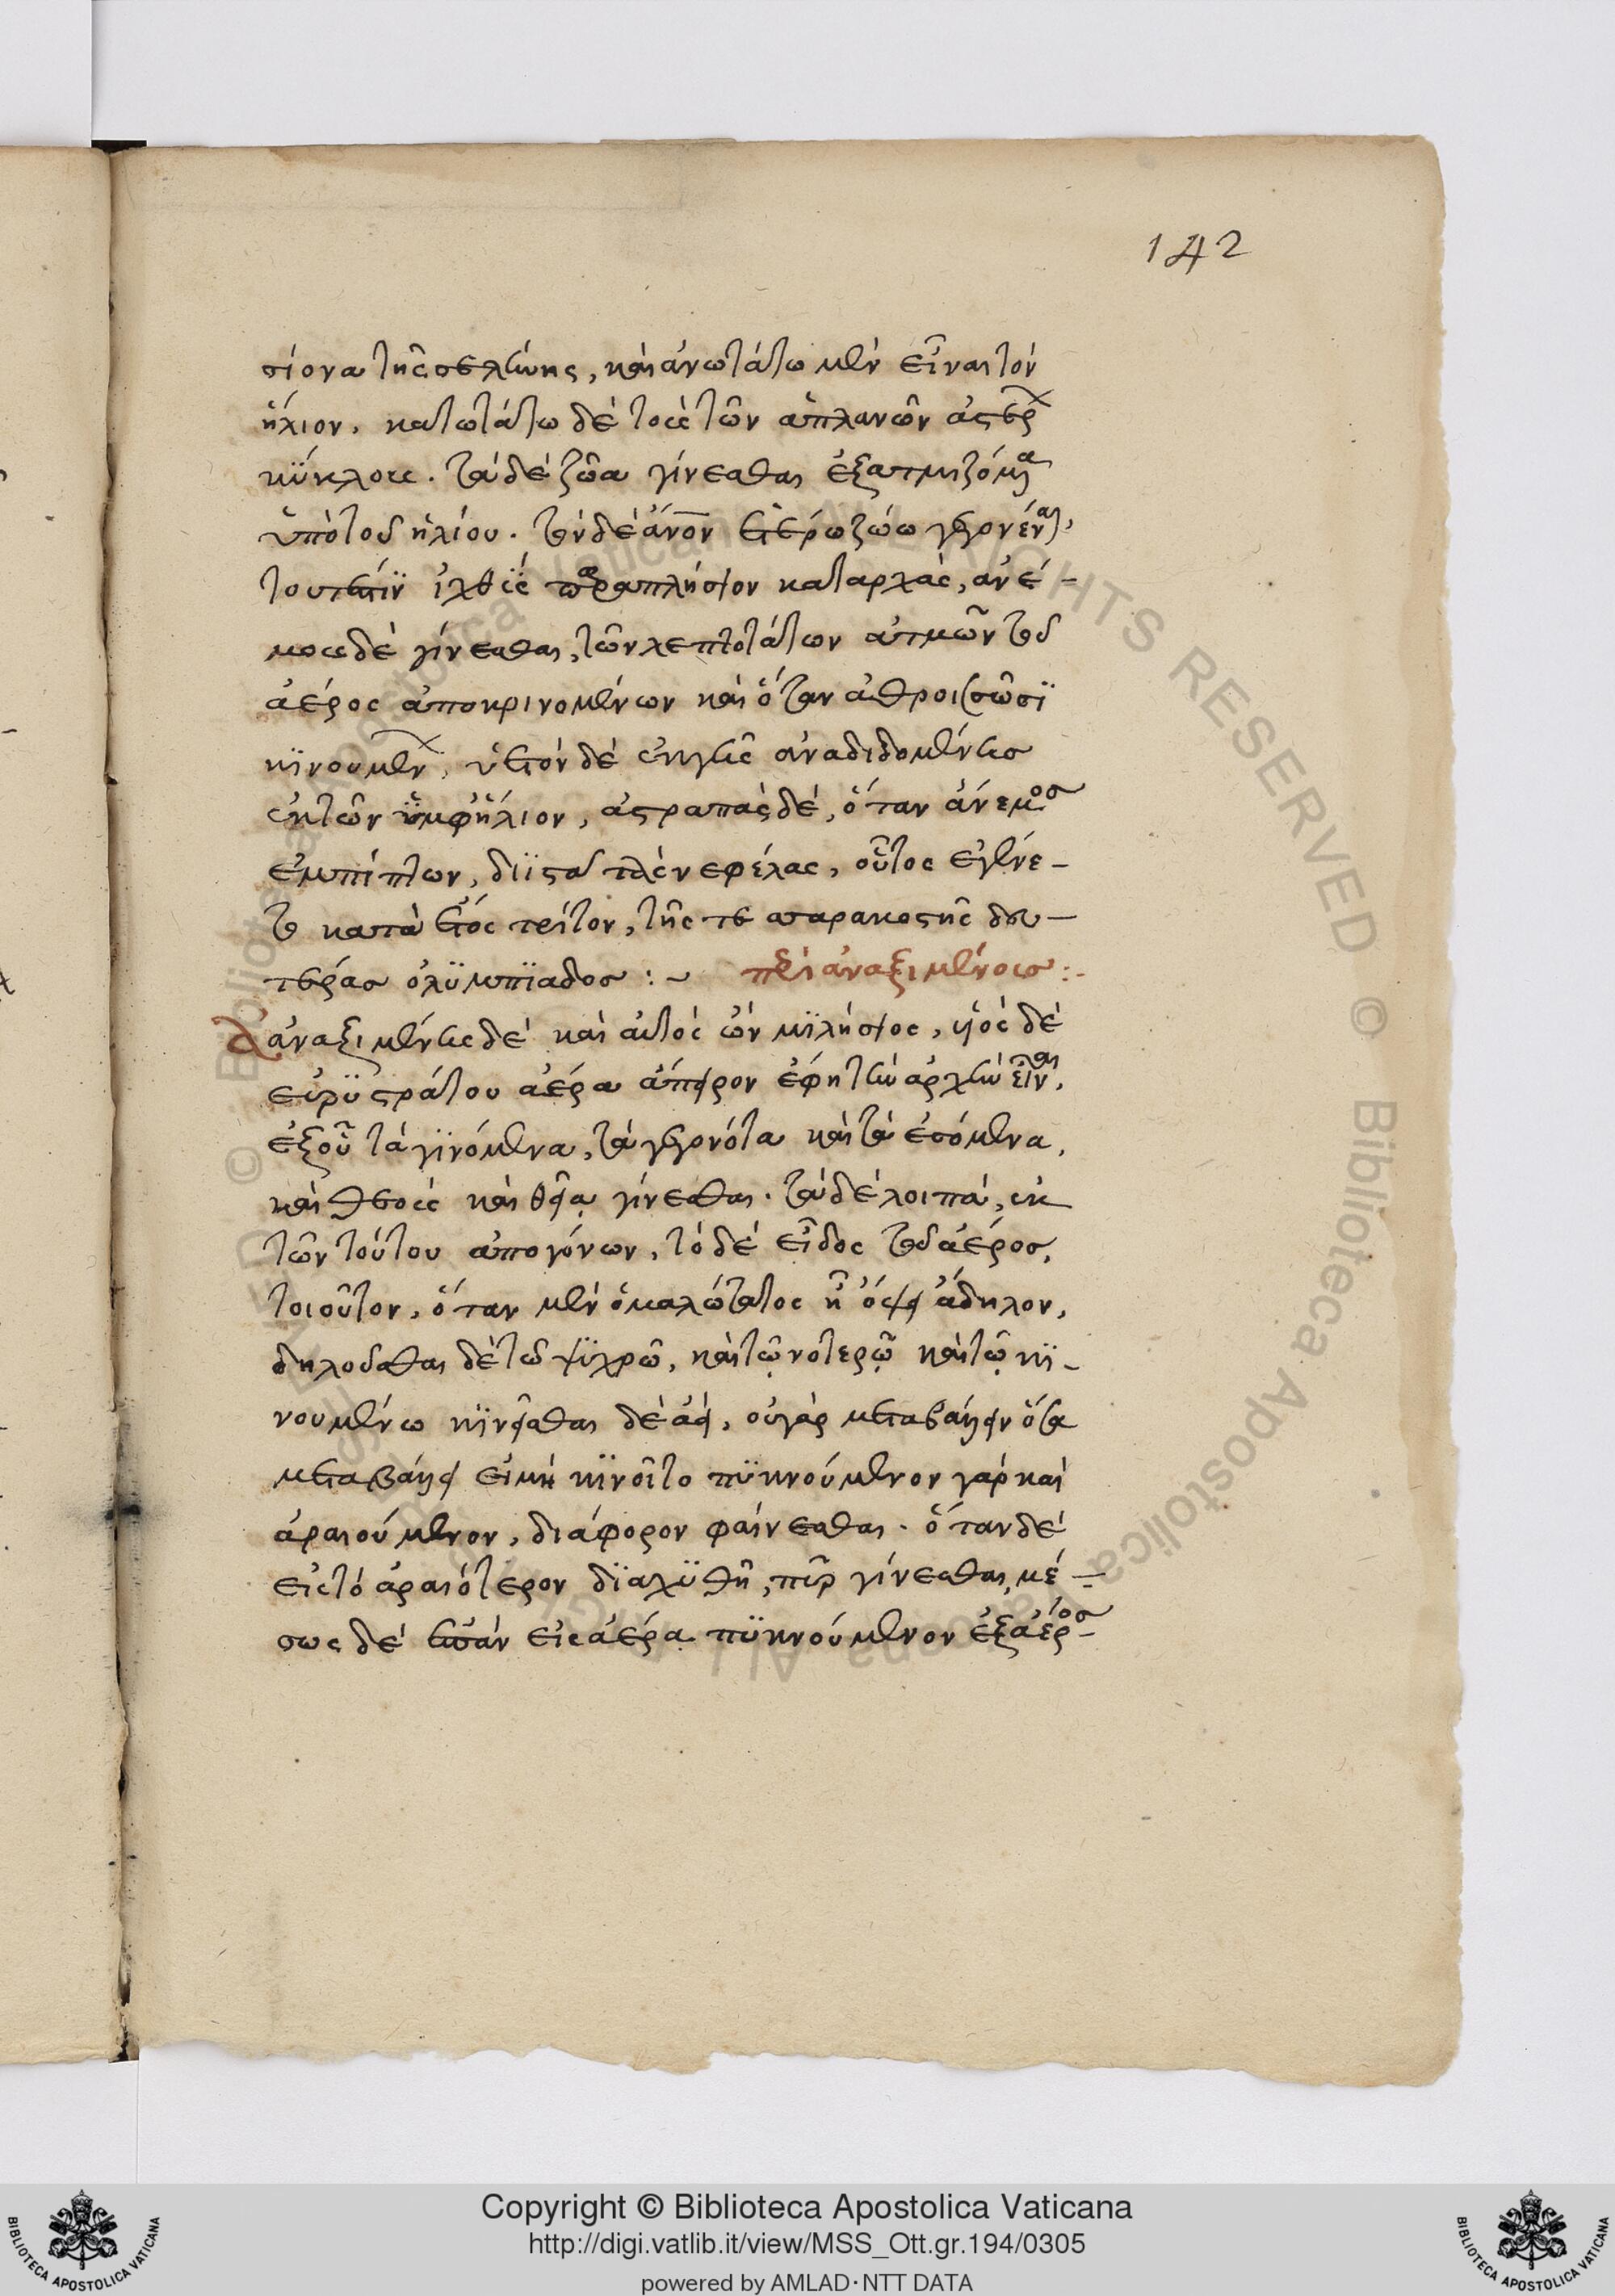 142
σίονα τῆς σελήνης, καὶ ἀνωτάτω μὲν εἶναι τὸν
ἥλιον. κατωτάτω δὲ τοὺς τῶν ἀπλανῶν ἀστέρ
κύκλους. τὰ δὲ ζῶα γίνεσθαι ἐξατμιζόμενα
ὑπὸ τοῦ ἡλίου. τὸν δὲ ἄνον ἑτέρω ζώω γεγονέναι,
τουτέστιν ἰχθύϊ παραπλήσιον καταρχὰς, ἀνέ-
μους δὲ γίνεσθαι, τῶν λεπτοτάτων ἀτμῶν τοῦ
ἀέρος ἀποκρινομένων καὶ ὅταν ἀθροισῶσϊ
κϊνουμεν, ὑετὸν δὲ ἐκ γῆς ἀναδιδομένης
ἐκ τῶν ὑμφἥλιον, ἀστραπὰς δὲ, ὅταν ἄνεμος
ἐμπίπτων, διϊστᾶ τὰς νεφέλας, οὗτος ἐγένε-
το κατὰ ἔτος τρίτον, τῆς τεσσαρακοστῆς δευ-
τέρας ὀλϋμπϊάδος :- περὶ ἀναξιμένους :-
ἀναξιμένης δὲ καὶ αὐτὸς ὢν μϊλήσιος, υἱὸς δὲ
εὐρϋστράτου ἀέρα ἄπειρον ἔφη τὴν ἀρχὴν εἶναι,
ἐξ οὗ τὰ γϊνόμενα, τὰ γεγονότα καὶ τὰ ἐσόμενα,
καὶ θεοὺς καὶ θεῖα γίνεσθαι. τὰ δὲ λοιπὰ, ἐκ
τῶν τούτου ἀπογόνων, τὸ δὲ εἶδος τοῦ ἀέρος,
τοιοῦτον, ὅταν μὲν ὁμαλώτατος ἦ ὄψει ἄδηλον,
δηλοῦσθαι δὲ τῶ ψϋχρῶ, καὶ τῷ νοτερῷ καὶ τῷ κϊ-
νουμένω κϊνεῖσθαι δὲ ἀεὶ, οὐ γὰρ μεταβάλλειν ὅσα
μεταβάλλει εἰ μὴ κϊνοῖτο πϋκνούμενον γὰρ καὶ
ἀραιούμενον, διάφορον φαίνεσθαι. ὅταν δὲ
εἰς τὸ ἀραιότερον δϊαχϋθῆ, πῦρ γίνεσθαι, μέ-
σως δὲ ἐπὰν εἰς ἀέρα πϋκνούμενον ἐξ ἀέρος-
Copyright © Biblioteca Apostolica Vaticana
http://digi.vatlib.it/view/MSS_Ott.gr.194/0305
powered by AMLAD·NTT DATA